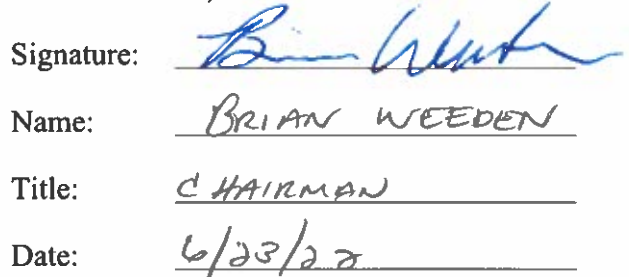 Signature: Brian Weeden
Name: BRIAN WEEDEN
Title: CHAIRMAN
Date: 6/23/22